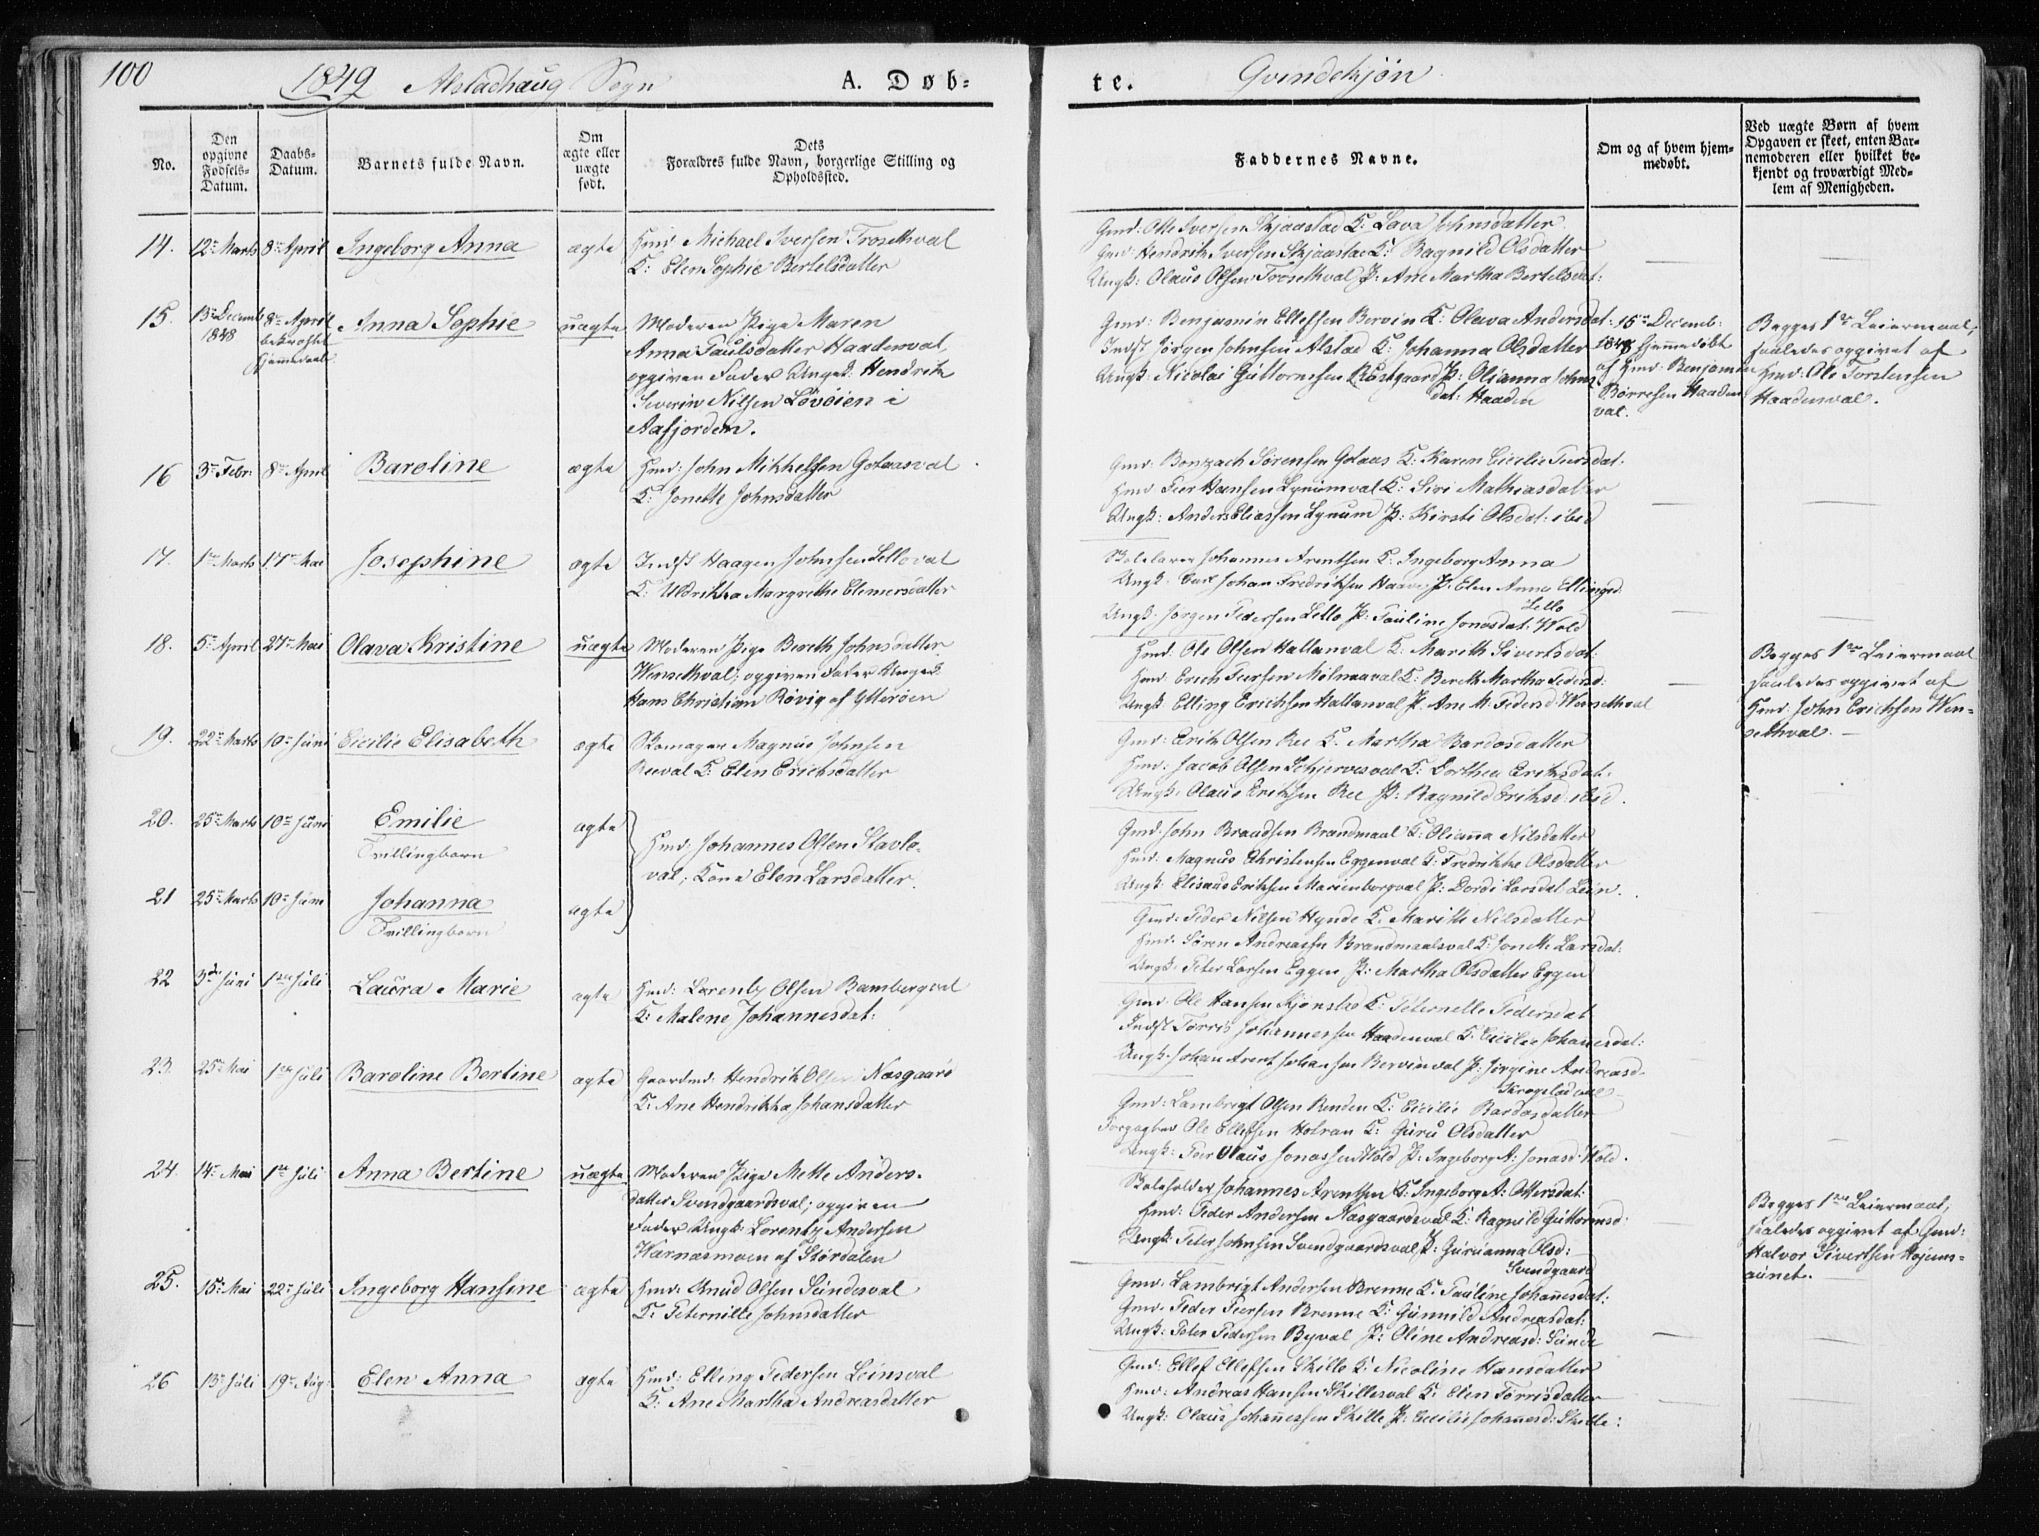 100
1849 Alstadhaug Sogn
A. Døb-
te.
Qvindekjøn
No.
Den opgivne Fødsels-Datum.
Daabs-Datum.
Barnets fulde Navn.
Om ægte eller uægte født.
Dets Forældres fulde Navn, borgerlige Stilling og Opholdssted.
Faddernes Navne.
Om og af hvem hjem-medøbt.
Ved uægte Børn af hvem Opgaven er skeet, enten Bar-nemoderen eller hvilket be-kjendt og troværdigt Med-lem af Menigheden.
14. 12te Marts 8de April Ingeborg Anna ægte Huusmd: Michael Iversen Trosethval
K: Elen Sophie Bertelsdatter
Gmd: Otte Iversen Skjaastad K: Lava Johnsdatter
Gmd: Hendrik Iversen Skjaastad K: Ragnild Olsdatter
Ungk: Olaus Olsen Trosethval P: Ane Martha Bertelsdat:
15. 13de Decemb 1848 8de April bekræftet Hjemmedaab Anna Sophie uægte Moderen Pige Maren
Anna Paulsdatter Haadenval,
opgiven Fader Ungk: Hendrik
Severin Nilsen Løvøien i
Aafjorden.
Gmd: Benjamin Ellefsen Bervin K: Olava Andersdat:
Indst Jørgen Johnsen Alstad K: Johanna Olsdatter
Ungk: Nicolai Guttormsen Røstgaard P: Olianna Johns
dat: Haaden
15de Decemb:
1848 Hjemmedøbt
af Hmd: Benjamin
Børresen Haaden
val.
Begges 1te Leiermaal,
saaledes opgivet af
Hmd: Ole Torstensen
Haadenval.
16 3de Febr: 8de April Baroline ægte Hmd: John Mikkelsen Gotaasval
K: Jonette Johnsdatter
Gmd: Bonsach Sørensen Gotaas K: Karen Cecilie Peersdat:
Hmd Peer Hansen Lynumval K: Siri Mathiasdatter
Ungk: Anders Eliassen Lynum P: Kirsti Olsdat: ibid
17. 1te Marts 17de Mai Josephine ægte Indst Haagen Johnsen Lelloval
K: Uldrikka Margrethe Elemersdatter
Skolelærer Johannes Arentsen K: Ingeborg Anna
Ungk: Carl Johan Fredriksen Haave P: Elen Anna Ellingsd:
Lello
Ungk: Jørgen Pedersen Lello P: Pauline Jonasdat: Wold
18. 5te April 27de Mai Olava Kristine uægte Moderen Pige Bereth Johnsdatter
Wensethval; opgiven Fader Ungk:
Hans Christian Røvig af Ytterøen
Hmd: Ole Olsen Hallanval K: Mareth Sivertsdat:
Hmd: Erich Peersen Mølnaaval K: Bereth Martha Pedersd:
Ungk: Elling Erichsen Hallanval P: Ane M. Pedersd: Wensethval
Begges 1te Leiermaal
saaledes opgivet af
Hmd: John Erichsen Wen-
sethval.
19. 22de Marts 10de Juni Cicilie Elisabeth ægte Skomager Magnus Johnsen
Reeval K: Elen Erichsdatter
Gmd: Erik Olsen Ree K: Martha Bardosdatter
Hmd: Jacob Olsen Schjervesval K: Dorthea Eriksdat:
Ungk: Olaus Eriksen Ree P: Ragnild Eriksd: ibid.
20. 25de Marts 10de Juni Emilie ægte
Tvillingbarn
Hmd: Johannes Olsen Stavlo-
val; Kone Elen Larsdatter.
Gmd: John Braadsen Brandmaal K: Olianna Nilsdatter
Hmd: Magnus Christensen Eggenval K: Fredrikke Olsdatter
Ungk: Elisaus Eriksen Marienborgval P: Dordi Larsdat: Lein.
21 25de Marts 10de Juni Johanna ægte
Tvillingbarn
Gmd: Peder Nilsen Hynde K: Maritte Nilsdatter
Hmd: Søren Andreassen Brandmaalsval K: Jonette Larsdat:
Ungk: Peter Larsen Eggen P: Martha Olsdatter Eggen
22 3de Juni 1ste Juli Laura Marie ægte Hmd: Lorentz Olsen Bambergval
K: Malene Johannesdat:
Gmd: Ole Hansen Kjønstad K: Peternelle Pedersdat
Indst Torris Johannessen Haadenval K: Cicilie Johanesdat:
Ungk: Johan Arent Johansen Bervinval P: Jørgine Andreasd:
Skrogstadval
23. 25de Mai 1ste Juli Baroline Bertine ægte Gaardmd: Hendrik Olsen Næsgaard
K: Ane Hendrikka Johansdatter
Gmd: Lambrigt Olsen Renden K: Cicilie Bardosdatter
Ole Ellefsen Holran K: Guru Olsdatter
Ungk: Peer Olaus Jonassen Wold P: Ingeborg A: Jonasd: Wold.
24. 14de Mai 1ste Juli Anna Bertine uægte Moderen Pige Mette Anders-
datter Svendgaardsval; opgiven
Fader Ungk: Lorentz Andersen
Warnæsmoen af Størdalen
Skoleholder Johannes Arentsen K: Ingeborg A: Ottersdat:
Hmd: Peder Andersen Næsgaardsval K: Ragnild Guttormsd:
Ungk: Peter Johnsen Svendgaardsval P: Guruanna Olsd:
Svendgaard
Begges 1ste Leiermaal,
saaledes opgivet af Gmd:
Halvor Sivertsen Hojem-
aunet.
25. 15de Mai 22de Juli Ingeborg Hansine ægte Hmd: Knud Olsen Sundesval
K: Peternille Johnsdatter
Gmd: Lambrigt Andersen Brenne K: Pauline Johannesdat:
Gmd: Peder Peersen Brenne K: Gunnild Andreasdat:
Ungk: Peter Pedersen Byval P: Oline Andreasd: Sunde
26 13de Juli 19de Aug: Elen Anna ægte Hmd: Elling Pedersen Leinsval
K: Ane Martha Andreasdatter
Gmd: Ellef Ellefsen Skille K: Nicoline Hansdatter
Hmd: Andreas Hansen Skillesval K: Elen Torrisdatter
Ungk: Olaus Johannessen Skille P: Cecilie Johannesd: Skille: